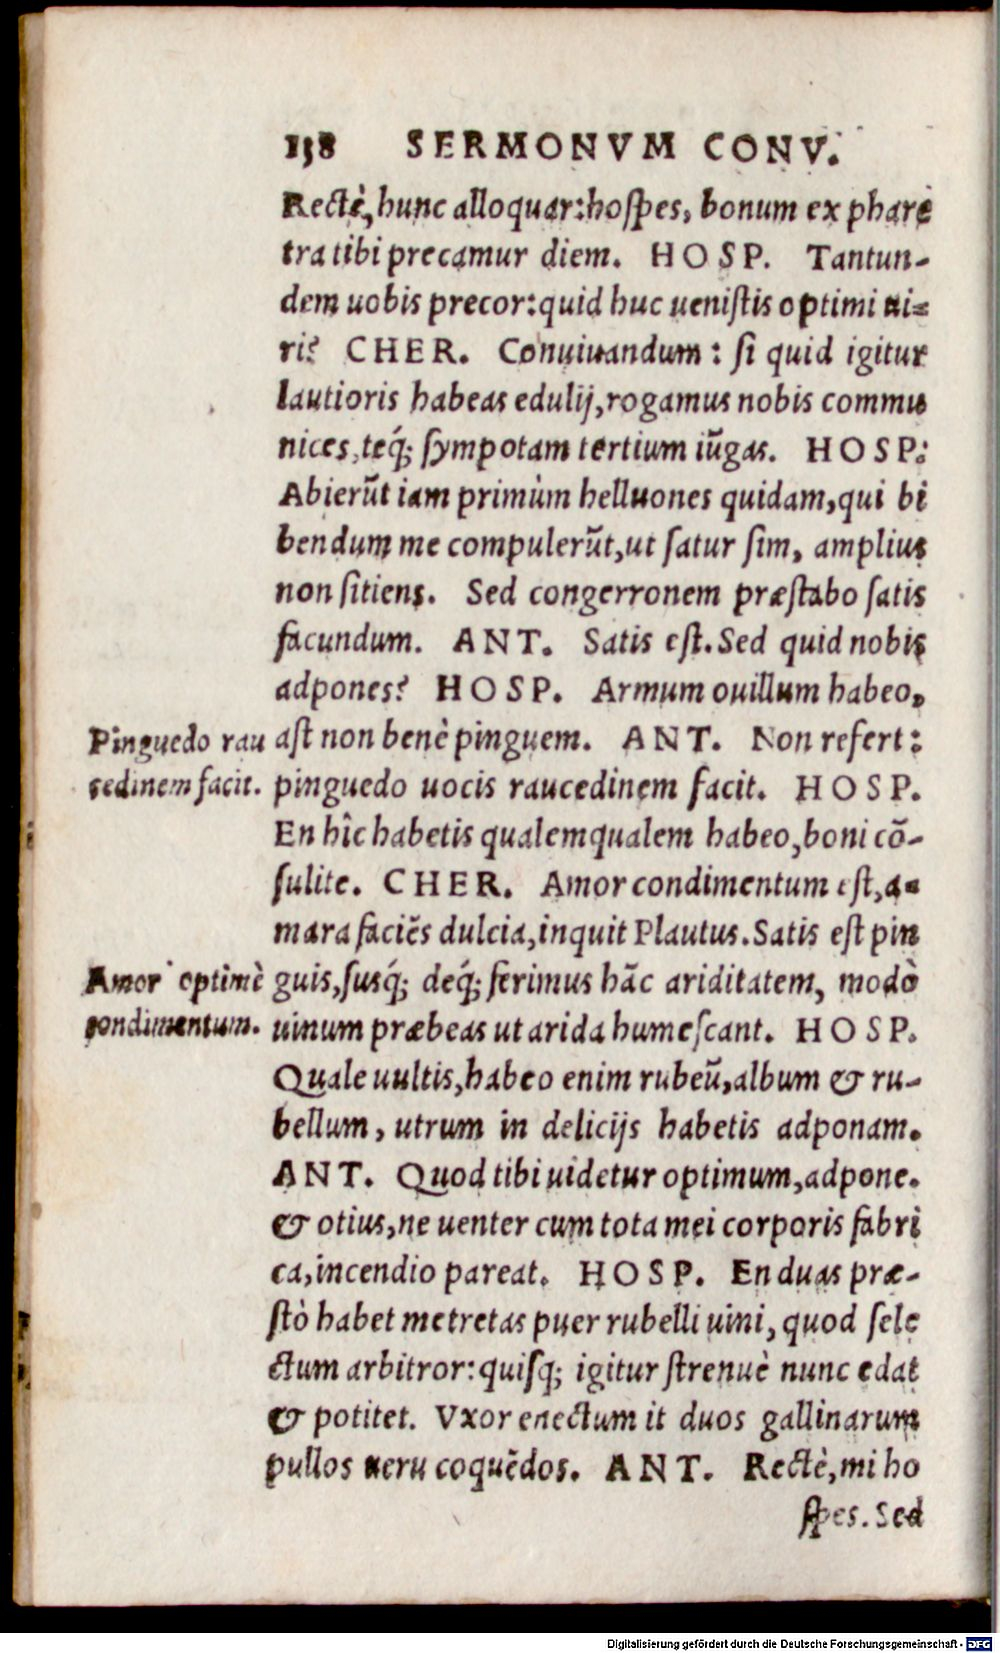 138 SERMONVM CONV.
Rectè, hunc alloquar: hospes, bonum ex pharē
tra tibi precamur diem. HOSP. Tantun-
dem uobis precor: quid huc uenistis optimi ui=
ri? CHER. Conuiuandum: si quid igitur
lautioris habeas edulij, rogamus nobis commu
nices, teq́; sympotam tertium iũgas. HOSP:
Abierũt iam primùm helluones quidam, qui bi
bendum me compulerũt, ut satur sim, amplius
non sitiens. Sed congerronem præstabo satis
facundum. ANT. Satis est. Sed quid nobis
adpones? HOSP. Armum ouillum habeo,
ast non benè pinguem. ANT. Non refert:
Pinguedo rau
cedinem facit.
pinguedo uocis raucedinem facit. HOSP.
En hîc habetis qualemqualem habeo, boni cō-
sulite. CHER. Amor condimentum est, a=
mara faciẽs dulcia, inquit Plautus. Satis est pin
Amor optimè
condimentum.
guis, susq́; deq́; ferimus hãc ariditatem, modò
uinum præbeas ut arida humescant. HOSP.
Quale uultis, habeo enim rubeũ, album & ru-
bellum, utrum in delicijs habetis adponam.
ANT. Quod tibi uidetur optimum, adpone.
& otius, ne uenter cum tota mei corporis fabri
ca, incendio pareat. HOSP. En duas præ-
stò habet metretas puer rubelli uini, quod sele
ctum arbitror: quisq; igitur strenuè nunc edat
& potitet. Vxor enectum it duos gallinarum
pullos ueru coquẽdos. ANT. Rectè, mi ho
spes. Sed
Digitalisierung gefördert durch die Deutsche Forschungsgemeinschaft - DFG